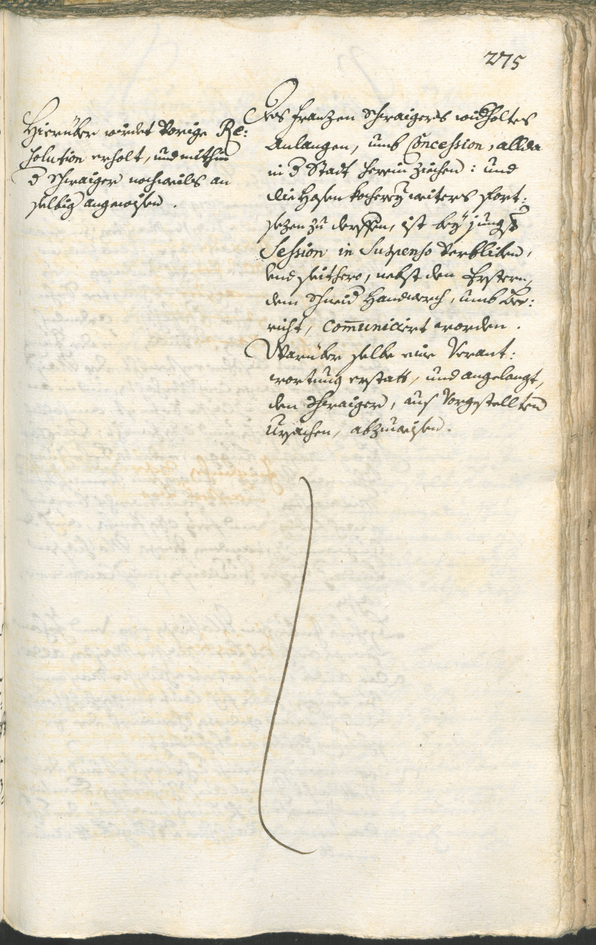 275
Hierüber würdet Vorige Re:
solution erholt, und mithin
d Schwaiger nochmals an
selbig angewisen.
Des Franzen Schwaigers widholtes
Anlangen, umb Concession, allda
in d Statt herein ziehen: und
die Hosen kocherey weiters fort:
sezen zu derffen, ist bey jungst
Session in Suspenso Verbliben,
und seithero, nebst den Erstern,
dem Schneid Handwerch, umb Be:
richt, com̄uniciert worden.
Warüber selbe eine Verant:
worttung erstatt, und angelangt,
den Schwaiger, aus Vorgestellten
Ursachen, abzuweisen.